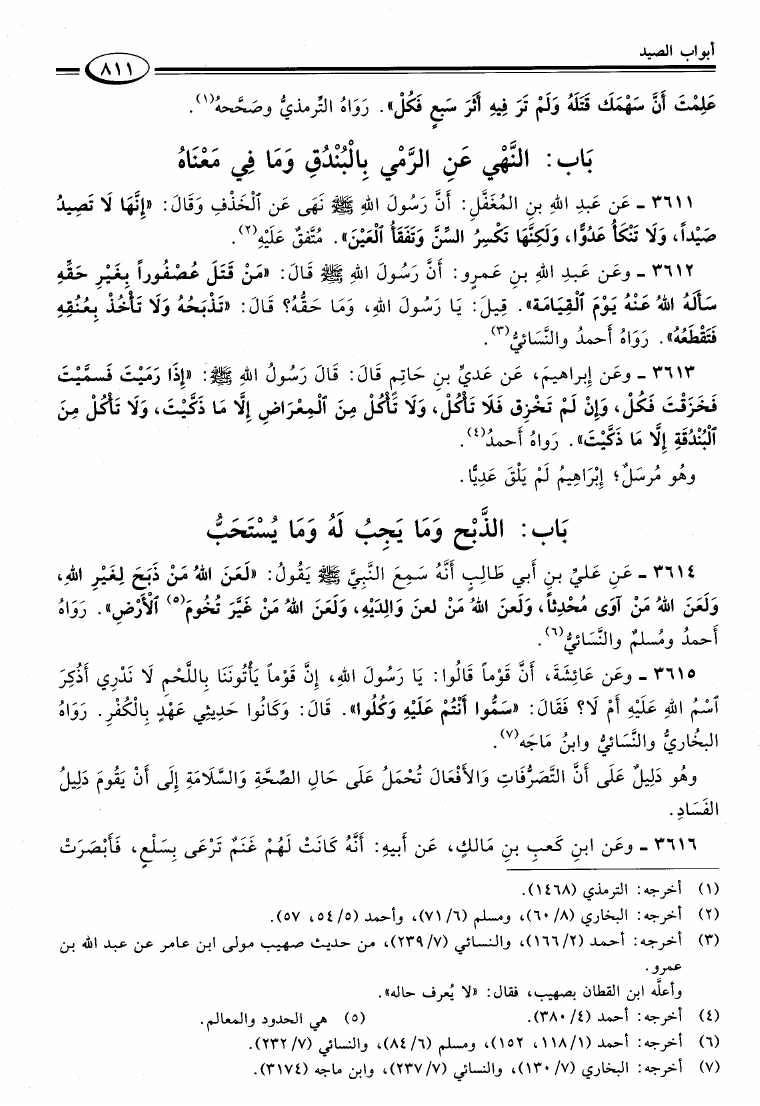 أبواب الصيد
٨١١
عَلِمْتَ أَنَّ سَهْمَكَ قَتَلَهُ وَلَمْ تَرَ فِيهِ أَثَرَ سَبعٍ فَكُلْ». رَوَاهُ التِّرمذيُّ وصَحَّحهُ(١).
بَاب: النَّهْي عَنِ الرَّمْي بِالْبُنْدُقِ وَمَا فِي مَعْنَاهُ
٣٦١١ ـ عَن عَبدِ اللهِ بنِ المُغَفَّلِ: أَنَّ رَسُولَ اللهِ ﷺ نَهَى عَنِ الْخَذْفِ وَقَالَ: «إِنَّهَا لَا تَصِيدُ
صَيْداً، وَلَا تَنْكَأُ عَدُوًّا، وَلَكِنَّهَا تَكْسِرُ السِّنَّ وَتَفْقَأُ الْعَيْنَ». مُتَّفقٌ عَلَيْهِ(٢).
٣٦١٢ ـ وعَن عَبدِ اللهِ بنِ عَمرٍو: أَنَّ رَسُولَ اللهِ ﷺ قَالَ: «مَنْ قَتَلَ عُصْفُوراً بِغَيْرِ حَقِّهِ
سَأَلَهُ اللهُ عَنْهُ يَوْمَ الْقِيَامَةِ». قِيلَ: يَا رَسُولَ اللهِ، وَمَا حَقُّهُ؟ قَالَ: «تَذْبَحُهُ وَلَا تَأْخُذْ بِعُنُقِهِ
فَتَقْطَعُهُ». رَوَاهُ أَحمدُ والنَّسَائيُّ(٣).
٣٦١٣ ـ وعَن إِبراهيمَ، عَن عَديِّ بنِ حَاتِمٍ قَالَ: قَالَ رَسُولُ اللهِ ﷺ: «إِذَا رَمَيْتَ فَسمَّيْتَ
فَخَزَقْتَ فَكُلْ، وَإِنْ لَمْ تَخْزِق فَلَا تَأْكُلْ، وَلَا تَأْكُلْ مِنَ الْمِعْرَاضِ إِلَّا مَا ذَكَّيْتَ، وَلَا تَأْكُلْ مِنَ
الْبُنْدُقَةِ إِلَّا مَا ذَكَّيْتَ». رَواهُ أَحمدُ(٤).
وهُو مُرسَلٌ؛ إِبْرَاهِيمُ لَمْ يَلْقَ عَدِيًّا.
بَاب: الذَّبْحِ وَمَا يَجِبُ لَهُ وَمَا يُسْتَحَبُّ
٣٦١٤ ـ عَن عَليِّ بنِ أَبي طَالِبٍ أَنَّهُ سَمِعَ النَّبِيَّ ﷺ يَقُولُ: «لَعَنَ اللهُ مَنْ ذَبَحَ لِغَيْرِ اللهِ،
وَلَعَنَ اللهُ مَنْ آوَى مُحْدِثاً، وَلَعنَ اللهُ مَنْ لعنَ وَالِدَيْهِ، وَلَعَنَ اللهُ مَنْ غَيَّرَ تُخُومَ(٥) الْأَرْضِ». رَوَاهُ
أَحمدُ ومُسلمٌ والنَّسَائيُّ(٦).
٣٦١٥ ـ وعَن عَائِشَةَ، أَنَّ قَوْماً قَالُوا: يَا رَسُولَ اللهِ، إِنَّ قَوْماً يَأْتُونَنَا بِاللَّحْمِ لَا نَدْرِي أَذُكِرَ
اسْمُ اللهِ عَلَيْهِ أَمْ لَا؟ فَقَالَ: «سَمُّوا أَنْتُمْ عَلَيْهِ وَكُلُوا». قَالَ: وَكَانُوا حَدِيثِي عَهْدٍ بِالْكُفْرِ. رَوَاهُ
البخَاريُّ والنَّسَائيُّ وابنُ مَاجَه(٧).
وهُو دَلِيلٌ عَلَى أَنَّ التَّصَرُّفَاتِ وَالأَفْعَالَ تُحْمَلُ عَلَى حَالِ الصِّحَّةِ وَالسَّلَامَةِ إِلَى أَنْ يَقُومَ دَلِيلُ
الفَسَادِ.
٣٦١٦ ـ وعَن ابنِ كَعبِ بنِ مَالكٍ، عَن أَبيهِ: أَنَّهُ كَانَتْ لَهُمْ غَنَمٌ تَرْعَى بِسَلْعٍ، فَأَبْصَرَتْ
(١) أخرجه: الترمذي (١٤٦٨).
(٢) أخرجه: البخاري (٦٠/٨)، ومسلم (٧١/٦)، وأحمد (٥٤/٥، ٥٧).
(٣) أخرجه: أحمد (١٦٦/٢)، والنسائي (٢٣٩/٧)، من حديث صهيب مولى ابن عامر عن عبد الله بن
عمرو.
وأعلَّه ابن القطان بصهيب، فقال: «لا يُعرف حاله».
(٤) أخرجه: أحمد (٣٨٠/٤). (٥) هي الحدود والمعالم.
(٦) أخرجه: أحمد (١١٨/١، ١٥٢)، ومسلم (٨٤/٦)، والنسائي (٢٣٢/٧).
(٧) أخرجه: البخاري (١٣٠/٧)، والنسائي (٢٣٧/٧)، وابن ماجه (٣١٧٤).